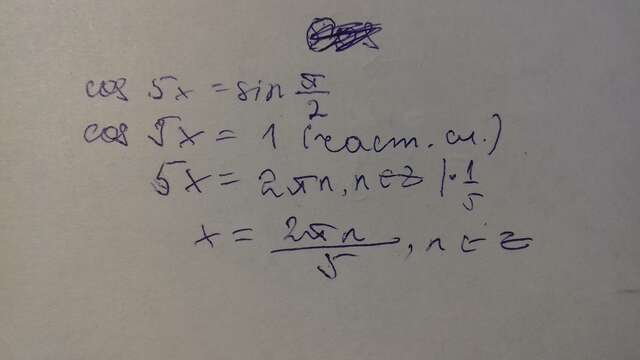 cos 5x = sin π/2
cos 5x = 1 (част. сл.)
5x = 2πn, n ∈ Z | · 1/5
x = 2πn/5, n ∈ Z